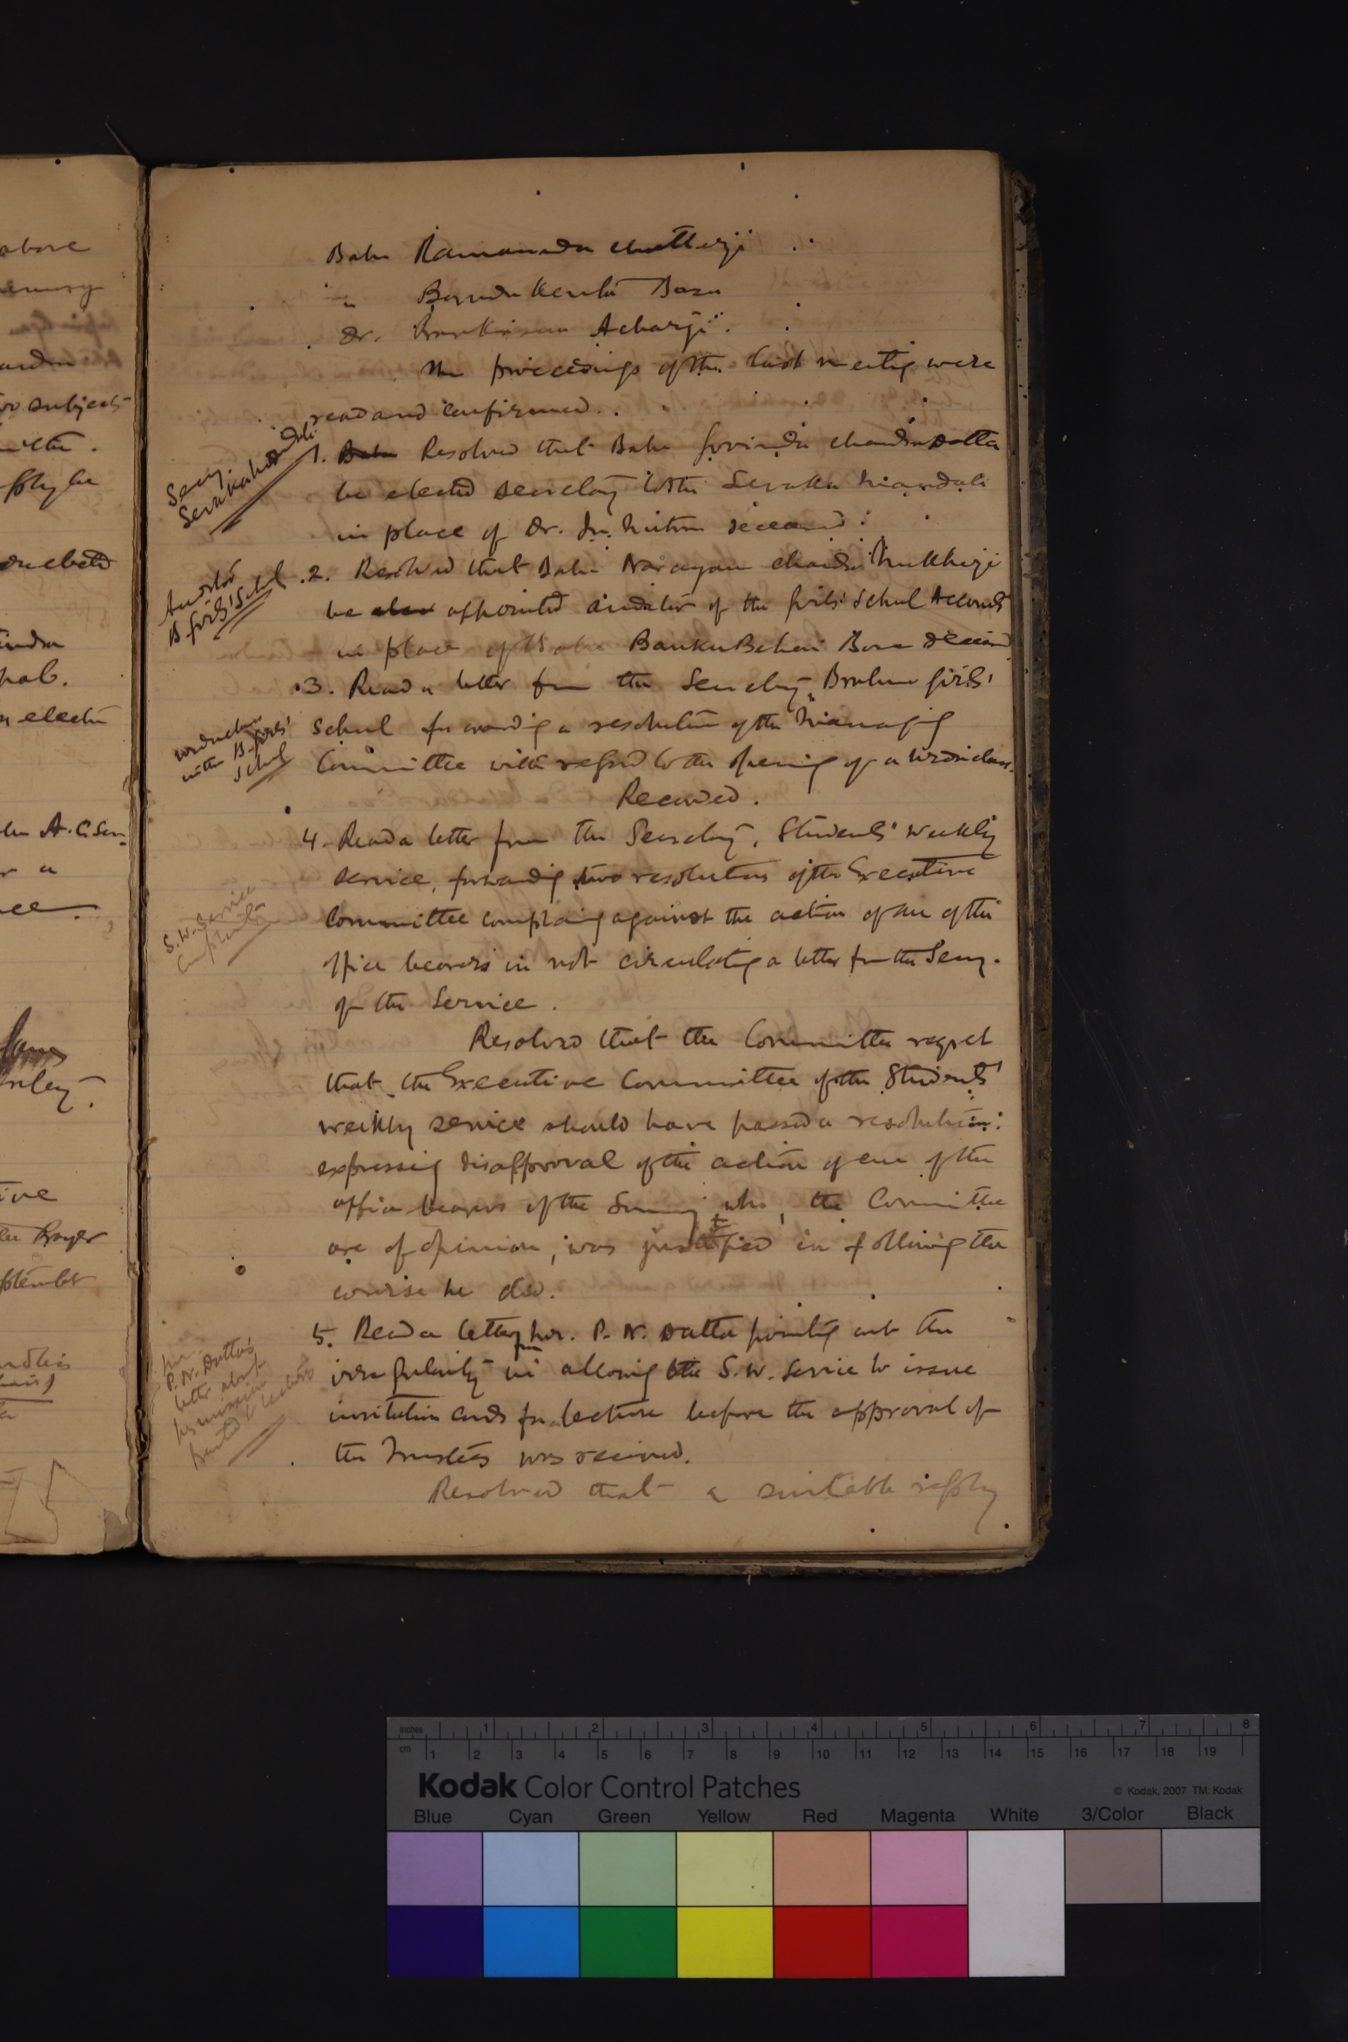 above
two subjects
reply be
A. C. Sen
Prayer
September
Babu Ramananda Chatterji
" Barada Kanta Basu
Dr. Prankrishna Acharji.
The proceedings of the last meeting were
read and confirmed.
Secy
Sevakahandali
1. Babu Resolved that Babu Govinda Chandra Datta
be elected secretary to the Sevaka Mandali
in place of Dr. M. Mitra deceased.
Auditor
B. Girls' School
2. Resolved that Babu Narayan Chandra Mukherji
be elec appointed auditor of the Girls' School Accounts
in place of Babu Banku Behari Bose deceased
3. Read a letter from the Secretary, Brahmo Girls'
School forwarding a resolution of the Managing
Committee with regard to the opening of a
B. Girls'
School
Received.
4. Read a letter from the Secretary, Students' Weekly
Service, forwarding two resolutions of the Executive
Committee complaining against the action of one of the
office bearers in not circulating a letter from the Secy.
of the Service.
S. W. Service
Complaint
Resolved that the Committee regret
that the Executive Committee of the Students'
weekly service should have passed a resolution
expressing disapproval of the action of one of the
office bearers of the Samaj who, the Committee
are of opinion, was justified in following the
course he did.
5. Read a letter from Mr. P. N. Datta pointing out the
irregularity in allowing the S. W. Service to issue
invitation cards for lecture before the approval of
the Trustees was received.
P. N. Datta's
letter about
permission
Resolved that a suitable reply
inches 1 2 3 4 5 6 7 8
cm 1 2 3 4 5 6 7 8 9 10 11 12 13 14 15 16 17 18 19
Kodak Color Control Patches
© Kodak, 2007 TM: Kodak
Blue Cyan Green Yellow Red Magenta White 3/Color Black